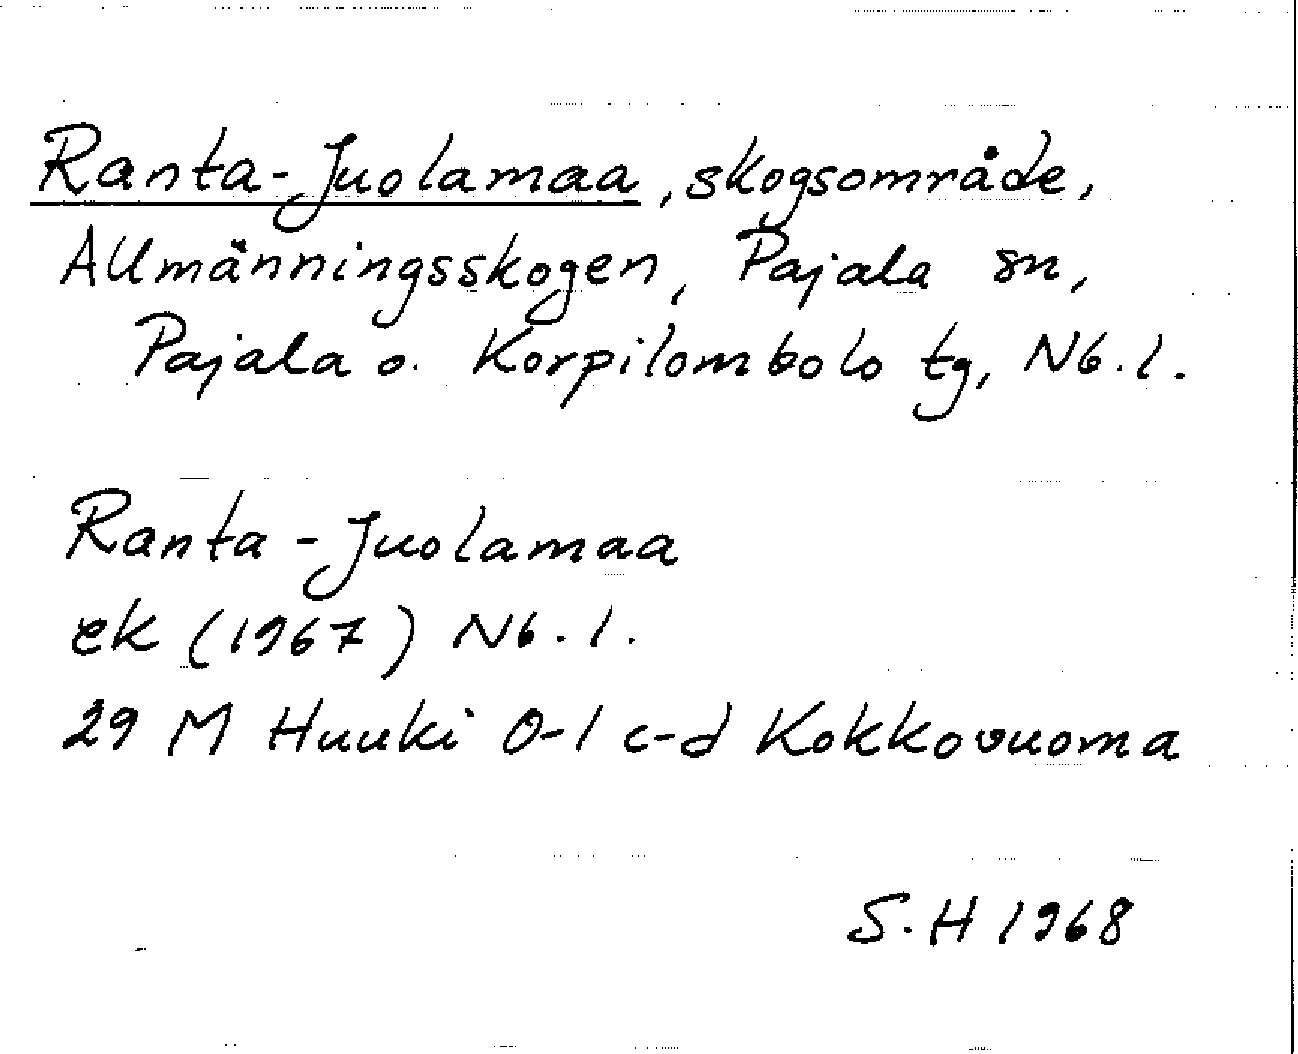 Ranta-Juolamaa, skogsområde,
Allmänningsskogen, Pajala sn,
Pajala o. Korpilombolo tg, Nb.l.
Ranta-Juolamaa
ek (1967) Nb.l.
29 M Huuki 0-1 c-d Kokkovuoma
S.H 1968